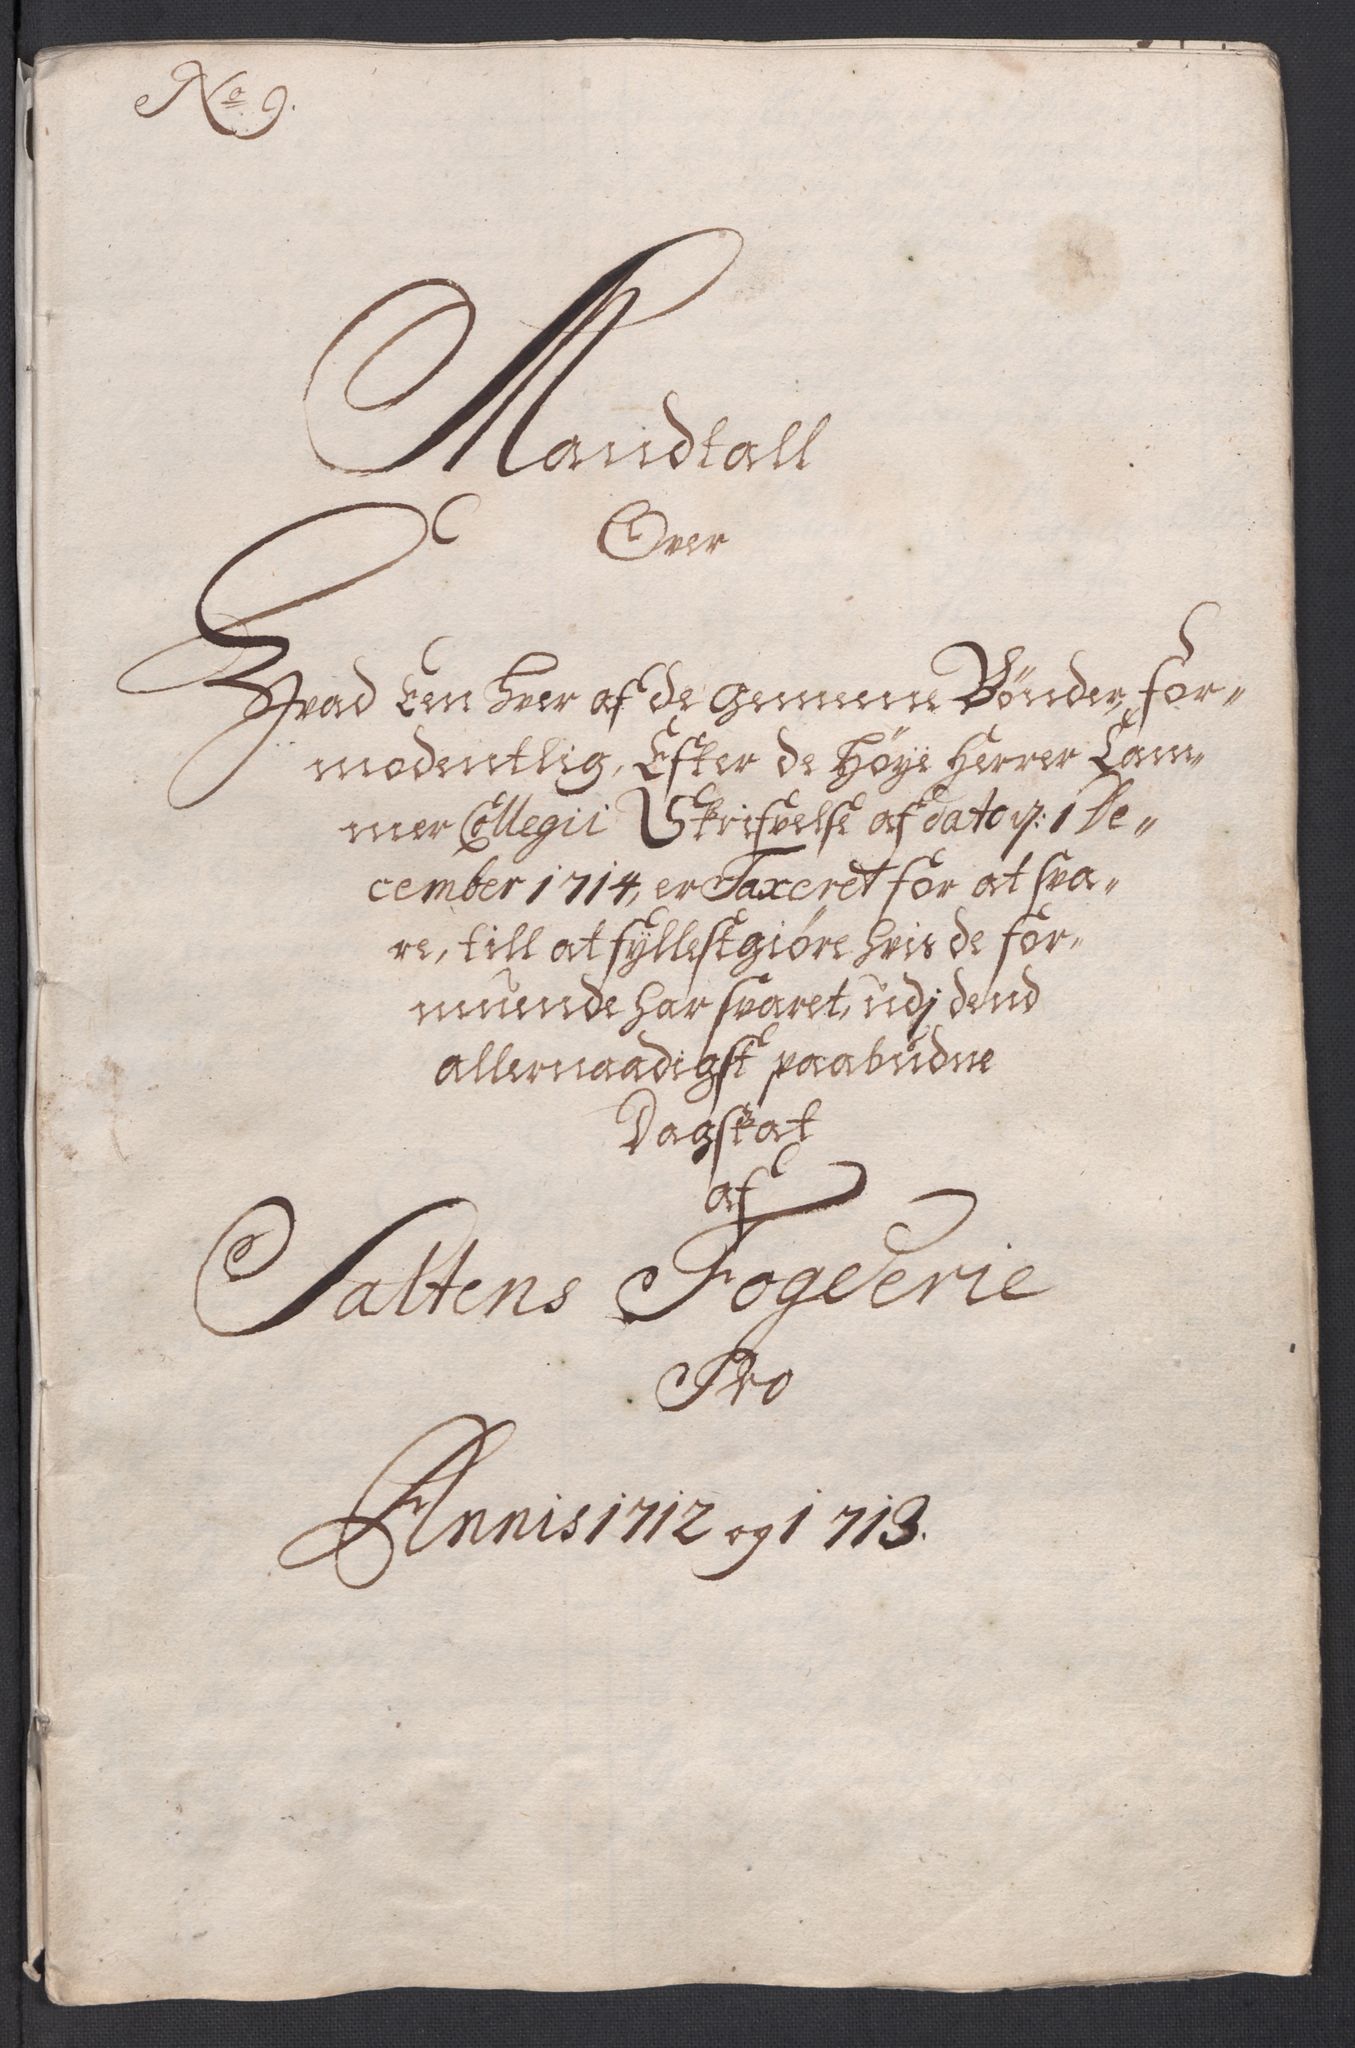 No 9.
Mandtall
Over
Hvad Een hver af de gemeene Bønder, for-
modentlig, Efter de Høÿe Herrer Cam-
mer Collegii Skrifvelse af dato 1 De-
cember 1714, er Taxeret for at sva-
re, till at fyllestgiøre hvis de for-
muende har svaret, udj dend
allernaadigst paabudne
Dagskat
af
Saltens Fogderie
Pro
Annis 1712 og 1713.